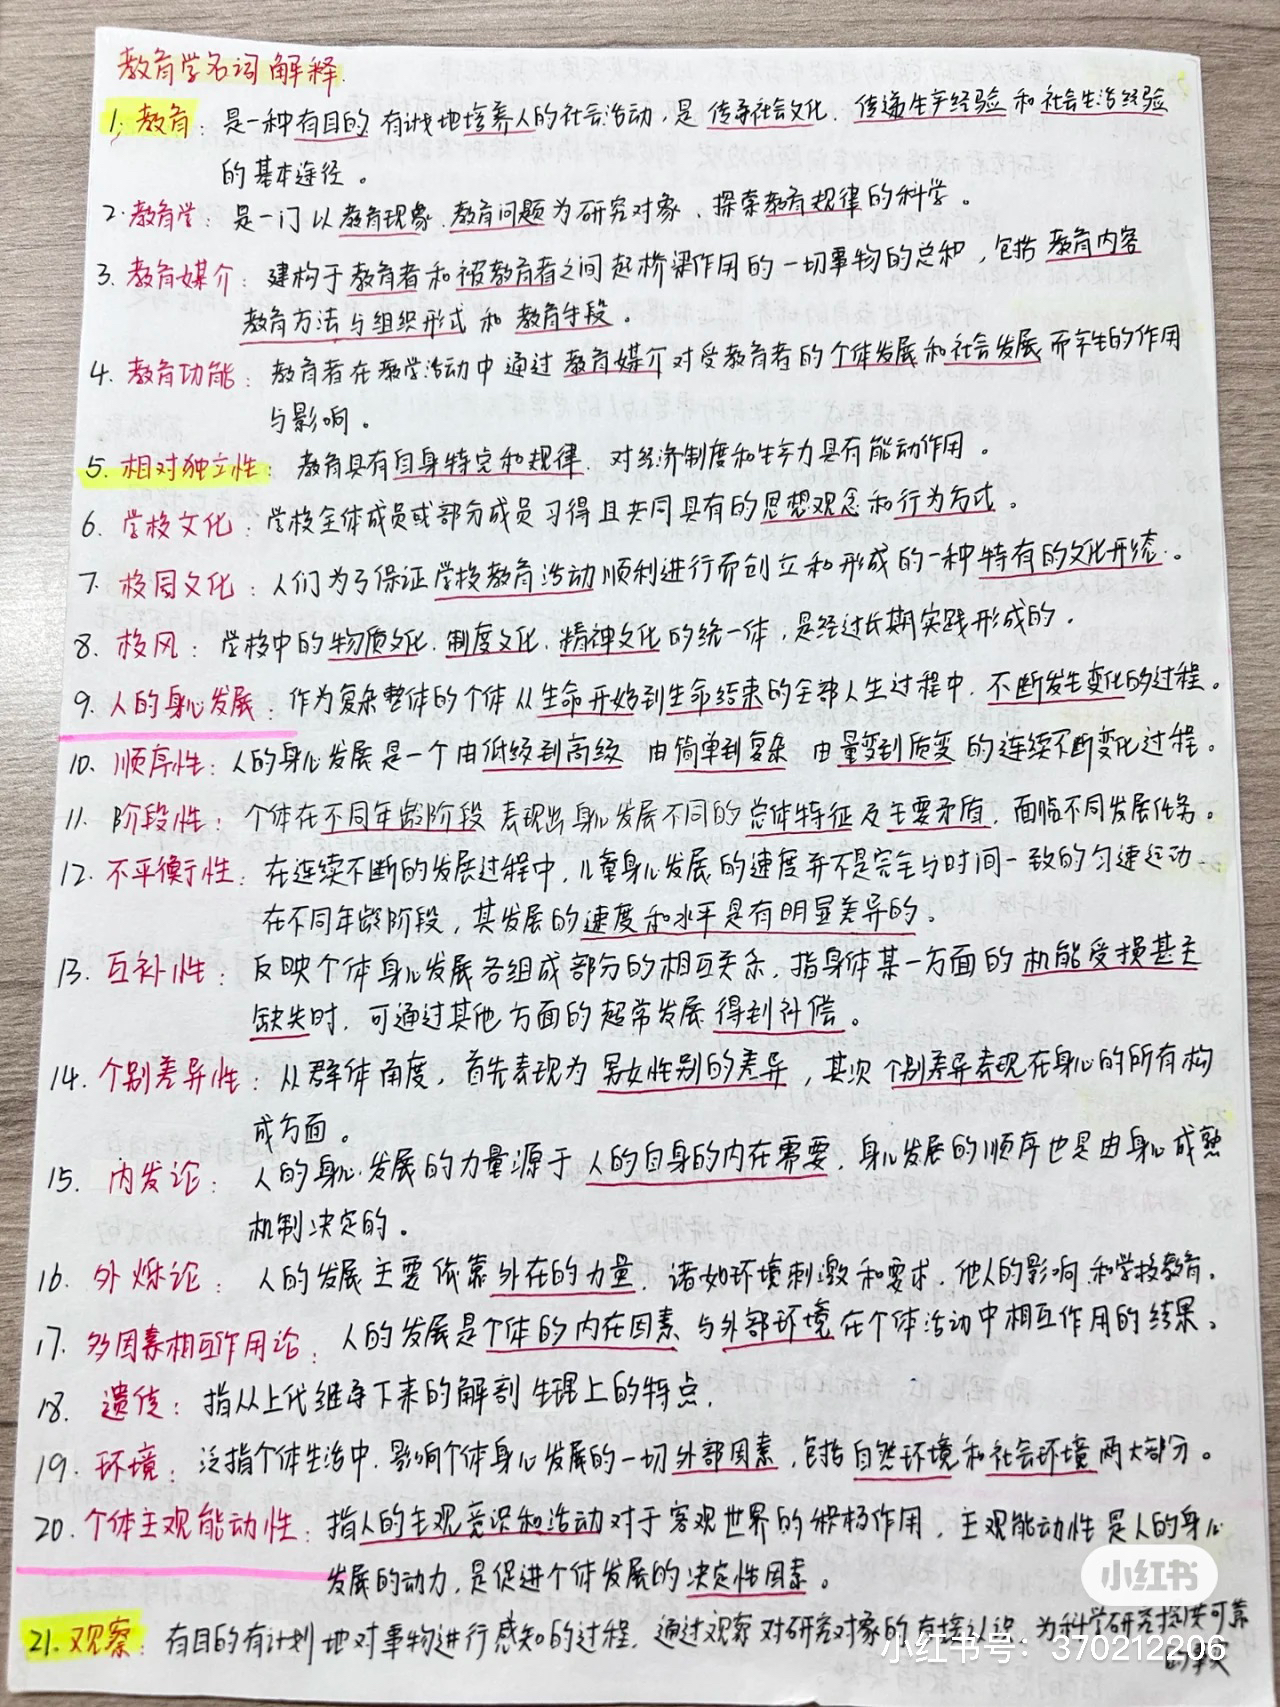 教育学名词解释.
1. 教育：是一种有目的 有计划地培养人的社会活动，是 传承社会文化、传递生产经验 和 社会生活经验
的基本途径。
2. 教育学：是一门以教育现象、教育问题为研究对象、探索教育规律的科学。
3. 教育媒介：建构于教育者和被教育者之间起桥梁作用的一切事物的总和，包括 教育内容
教育方法与组织形式 和 教育手段。
4. 教育功能：教育者在教学活动中通过教育媒介对受教育者的个体发展和社会发展而产生的作用
与影响。
5. 相对独立性：教育具有自身特定和规律、对经济制度和生产力具有能动作用。
6. 学校文化：学校全体成员或部分成员习得且共同具有的思想观念和行为方式。
7. 校园文化：人们为了保证学校教育活动顺利进行而创立和形成的一种特有的文化形态。
8. 校风：学校中的物质文化、制度文化、精神文化的统一体，是经过长期实践形成的.
9. 人的身心发展：作为复杂整体的个体从生命开始到生命结束的全部人生过程中，不断发生变化的过程。
10. 顺序性：人的身心发展是一个由低级到高级 由简单到复杂 由量变到质变 的连续不断变化过程。
11. 阶段性：个体在不同年龄阶段 表现出身心发展不同的总体特征及主要矛盾，面临不同发展任务。
12. 不平衡性：在连续不断的发展过程中，儿童身心发展的速度并不是完全与时间一致的匀速运动、
在不同年龄阶段，其发展的速度和水平是有明显差异的。
13. 互补性：反映个体身心发展各组成部分的相互关系，指身体某一方面的机能受损甚至
缺失时，可通过其他方面的超常发展 得到补偿。
14. 个别差异性：从群体角度，首先表现为 男女性别的差异，其次 个别差异表现在身心的所有构
成方面。
15. 内发论：人的身心发展的力量源于人的自身的内在需要，身心发展的顺序也是由身心成熟
机制决定的。
16. 外烁论：人的发展主要依靠外在的力量，诸如环境刺激和要求、他人的影响和学校教育.
17. 多因素相互作用论：人的发展是个体的内在因素与外部环境在个体活动中相互作用的结果。
18. 遗传：指从上代继承下来的解剖生理上的特点，
19. 环境：泛指个体生活中，影响个体身心发展的一切外部因素，包括自然环境和社会环境两大部分。
20. 个体主观能动性：指人的主观意识和活动对于客观世界的积极作用，主观能动性是人的身心
发展的动力，是促进个体发展的决定性因素。
21. 观察：有目的有计划地对事物进行感知的过程，通过观察对研究对象的直接认识，为科学研究提供可靠
的事实
小红书
小红书号：370212206